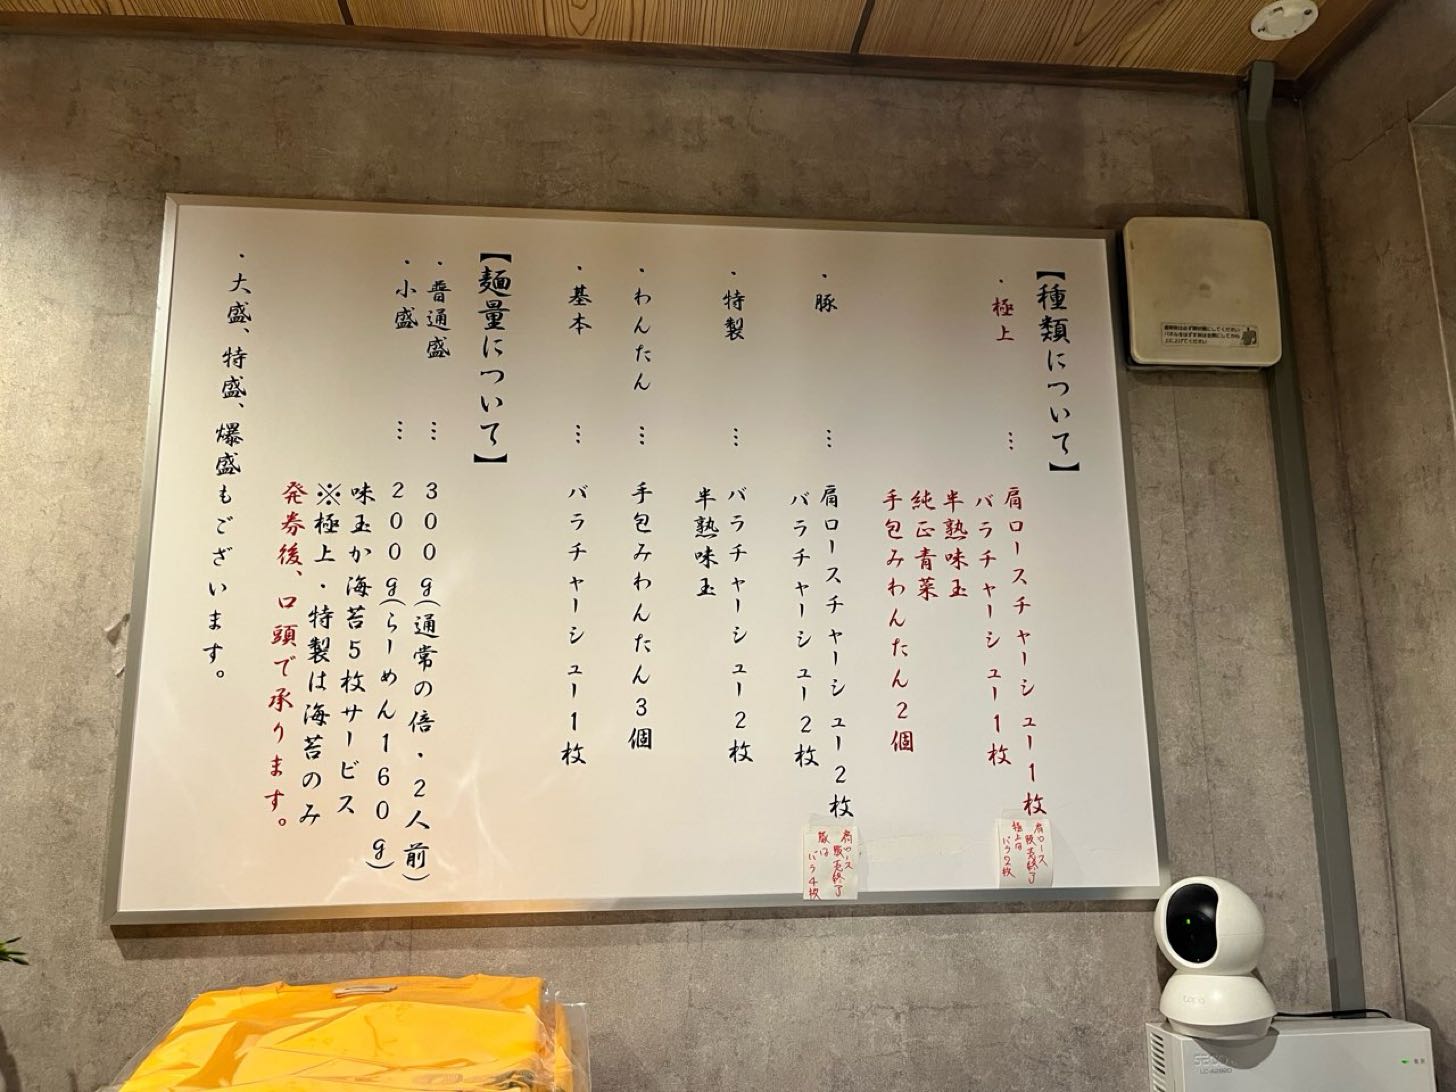 【種類について】
・極上 … 肩ロースチャーシュー1枚
バラチャーシュー1枚
半熟味玉
純正青菜
手包みわんたん2個
・豚 … 肩ロースチャーシュー2枚
バラチャーシュー2枚
・特製 … バラチャーシュー2枚
半熟味玉
・わんたん … 手包みわんたん3個
・基本 … バラチャーシュー1枚
【麺量について】
・普通盛 … 300g(通常の倍・2人前)
・小盛 … 200g(らーめん160g)
味玉か海苔5枚サービス
※極上・特製は海苔のみ
発券後、口頭で承ります。
・大盛、特盛、爆盛もございます。
肩ロース
販売終了
極上は
バラ2枚
肩ロース
販売終了
豚は
バラ4枚
tapo